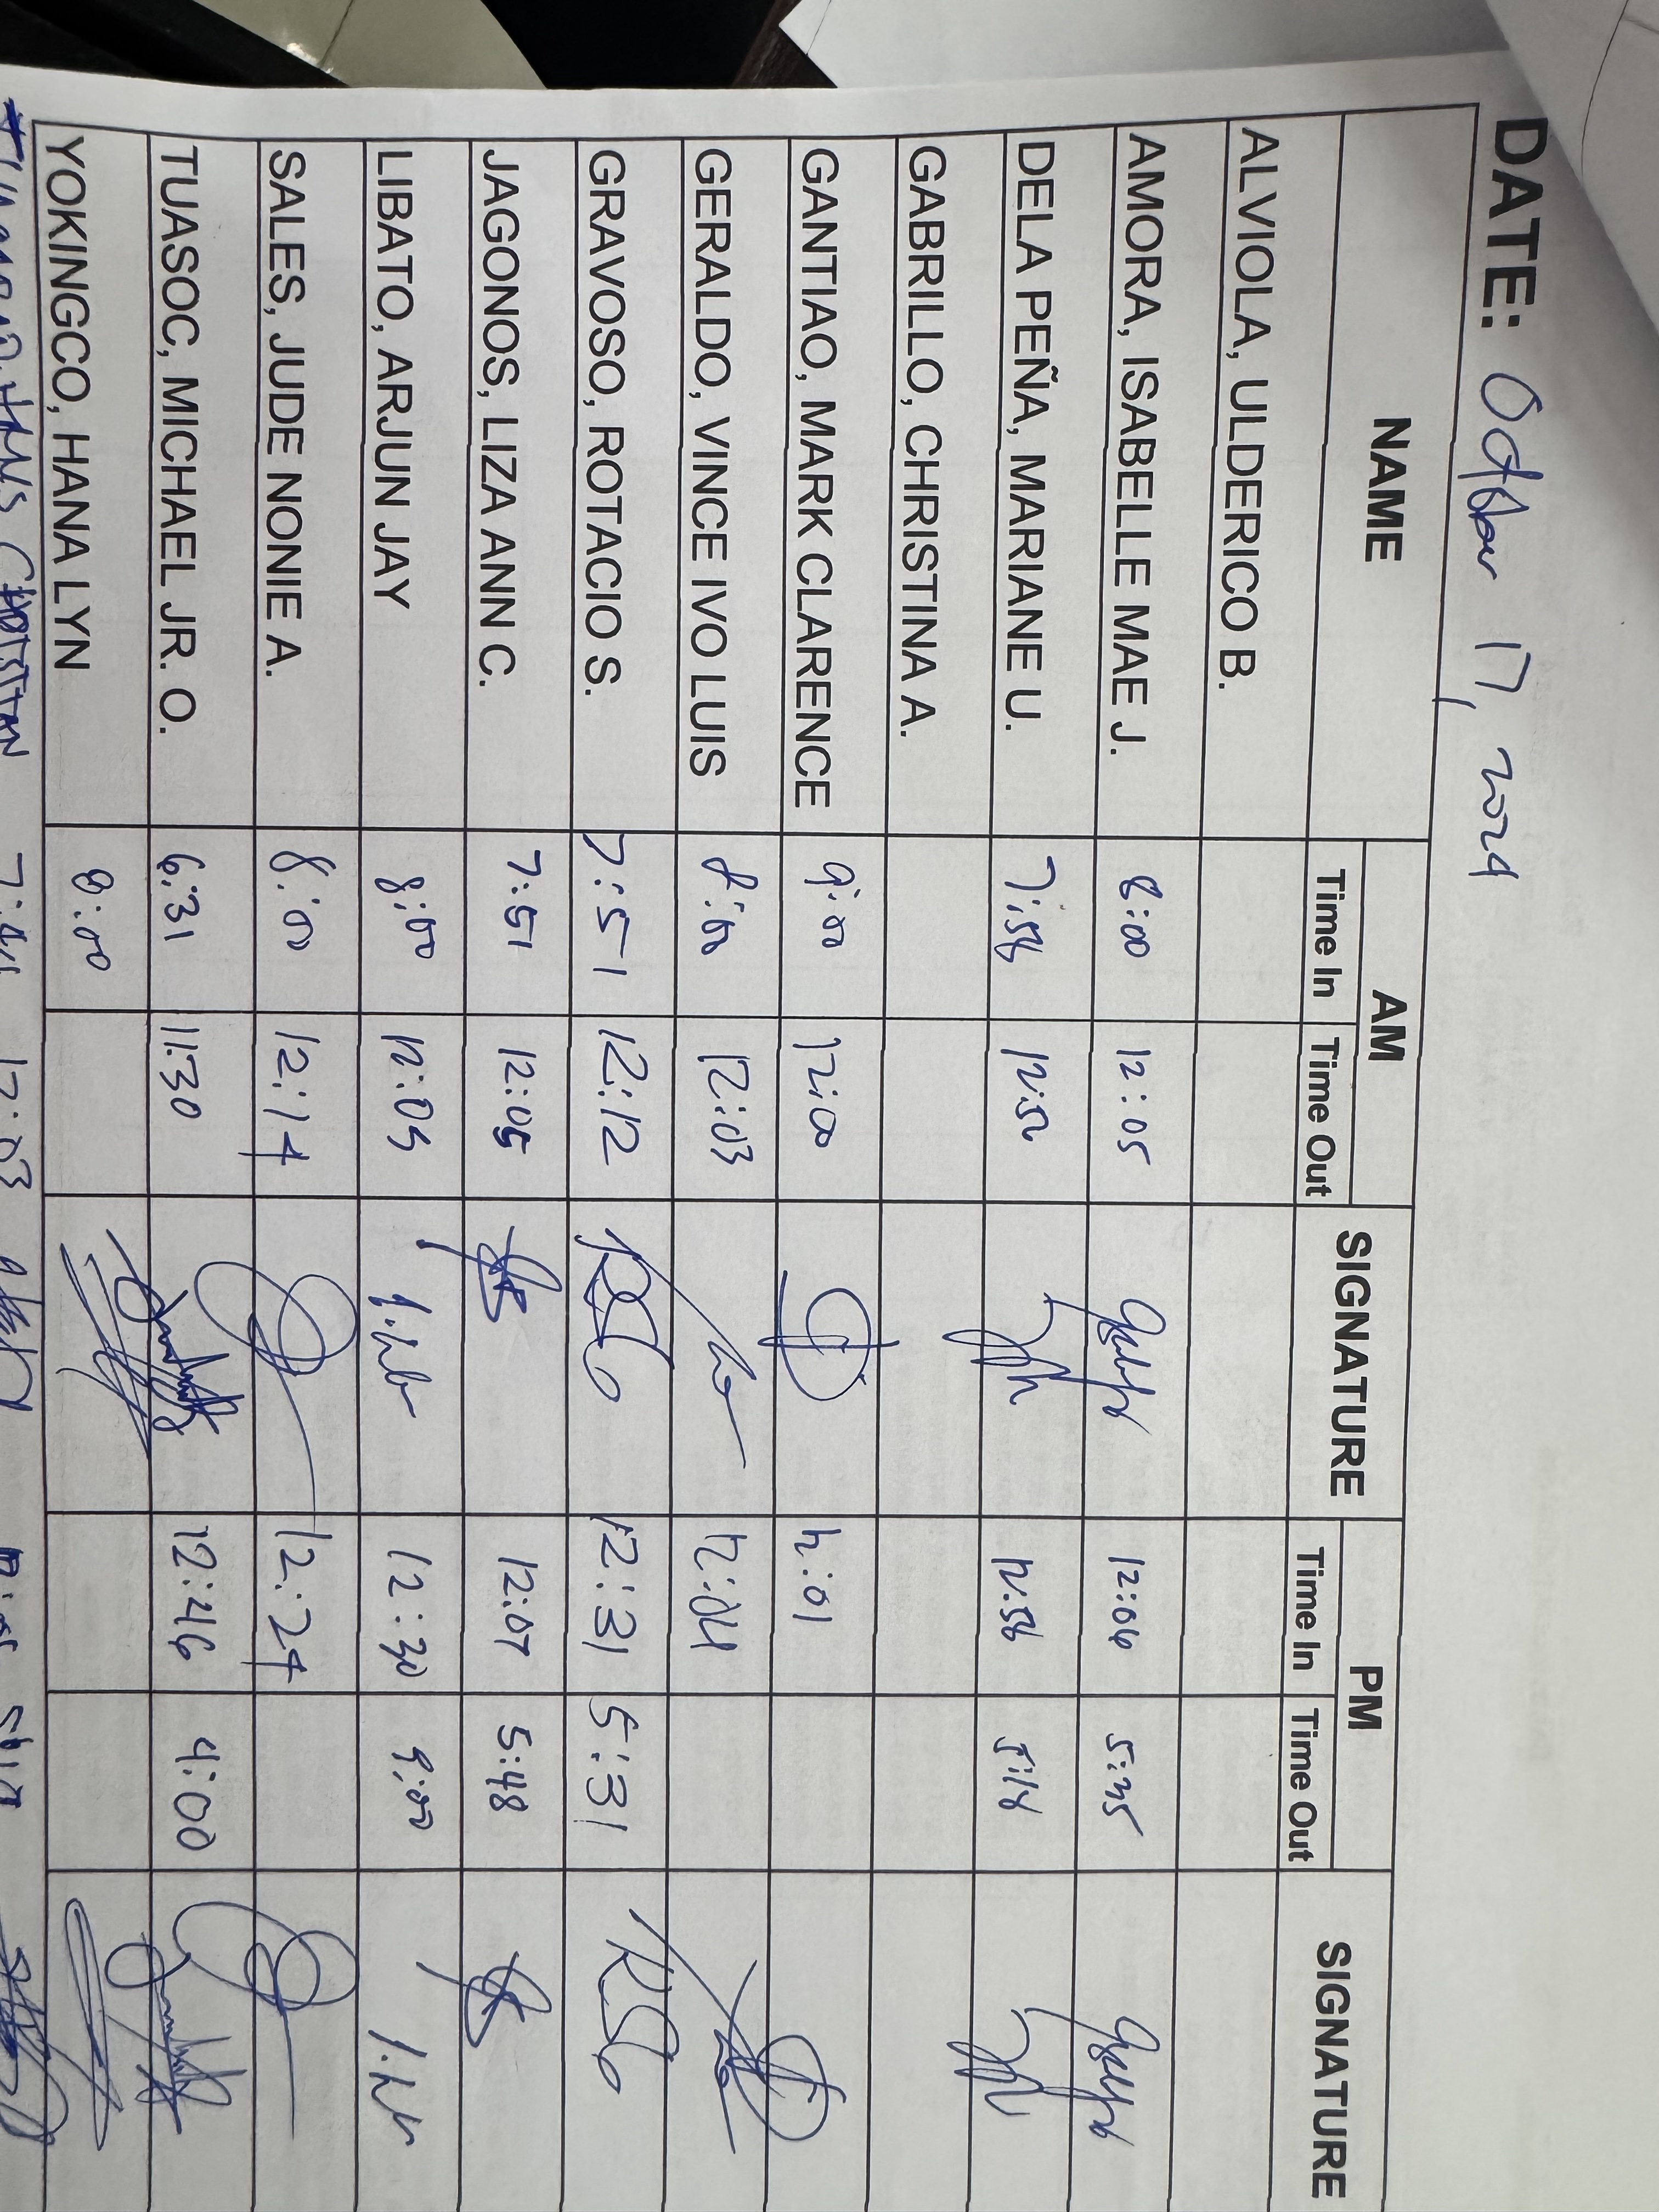 DATE: October 17, 2024
NAME AM SIGNATURE PM SIGNATURE
Time In Time Out Time In Time Out
ALVIOLA, ULDERICO B.
AMORA, ISABELLE MAE J. 8:00 12:05 12:06 5:35
DELA PEÑA, MARIANE U. 7:56 12:56 5:18
GABRILLO, CHRISTINA A.
GANTIAO, MARK CLARENCE 9:00 12:00 12:01
GERALDO, VINCE IVO LUIS 8:00 12:03 12:04
GRAVOSO, ROTACIO S. 7:51 12:12 RSG 12:31 5:31 RSG
JAGONOS, LIZA ANN C. 7:51 12:05 12:07 5:48
LIBATO, ARJUN JAY 8:00 12:03 12:30 9:00
SALES, JUDE NONIE A. 8:00 12:14 12:24
TUASOC, MICHAEL JR. O. 6:31 11:30 12:46 4:00
YOKINGCO, HANA LYN 8:00
12:03